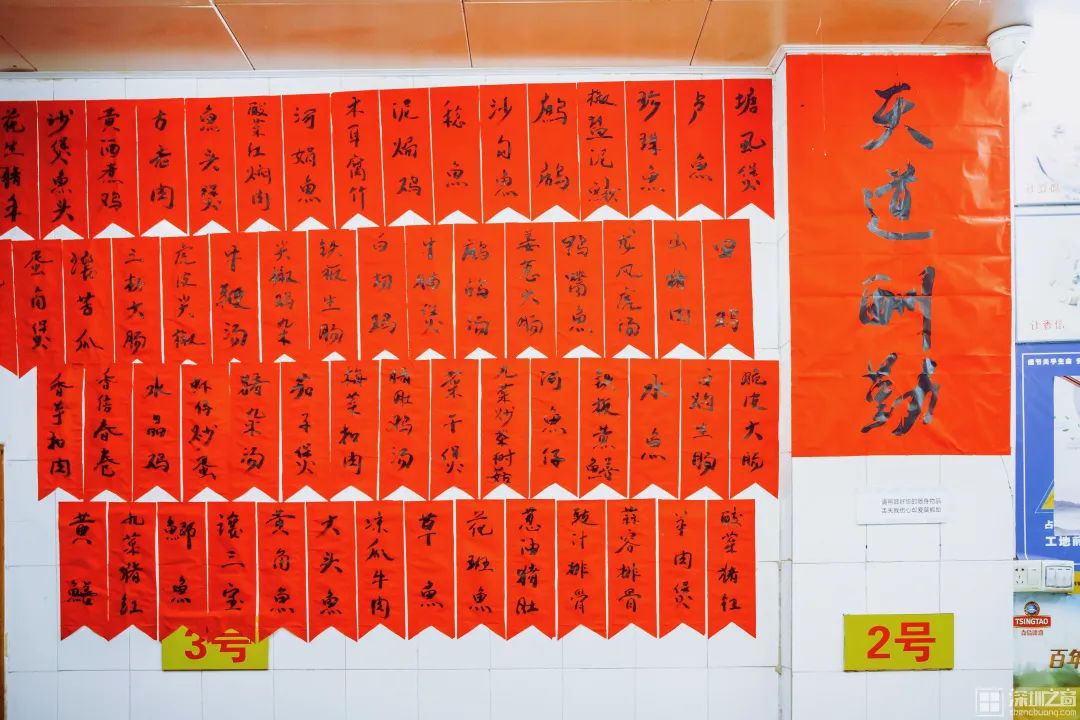 天道酬勤
塘虱煲
卢魚
珍珠魚
椒盐泥蜢
鹧鸪
沙勾魚
稔魚
泥焗鸡
木耳腐竹
河娟魚
酸菜红焖肉
魚头煲
黄酒煮鸡
沙煲魚头
花生猪手
山猪肉
龙风虎汤
鸭嘴魚
姜葱大肠
鹧鸪汤
牛腩煲
白切鸡
铁板生肠
尖椒鸡杂
牛鞭汤
虎皮尖椒
大肠
酿苦瓜
蛋角煲
脆皮大肠
白灼生肠
水魚
铁板黄鳝
河魚仔
九菜炒茶树菇
菜干煲
猪肚鸡汤
梅菜扣肉
茄子煲
猪杂汤
虾仔炒蛋
水晶鸡
香信春卷
香芋扣肉
酸菜猪红
羊肉煲
蒜容排骨
豉汁排骨
葱油猪肚
花斑魚
草魚
凉瓜牛肉
大头魚
黄角魚
酿三宝
鲫魚
九菜猪红
黄鳝
3号
2号
让香信
工地前
TSINGTAO
青岛啤酒
百年
深圳之窗